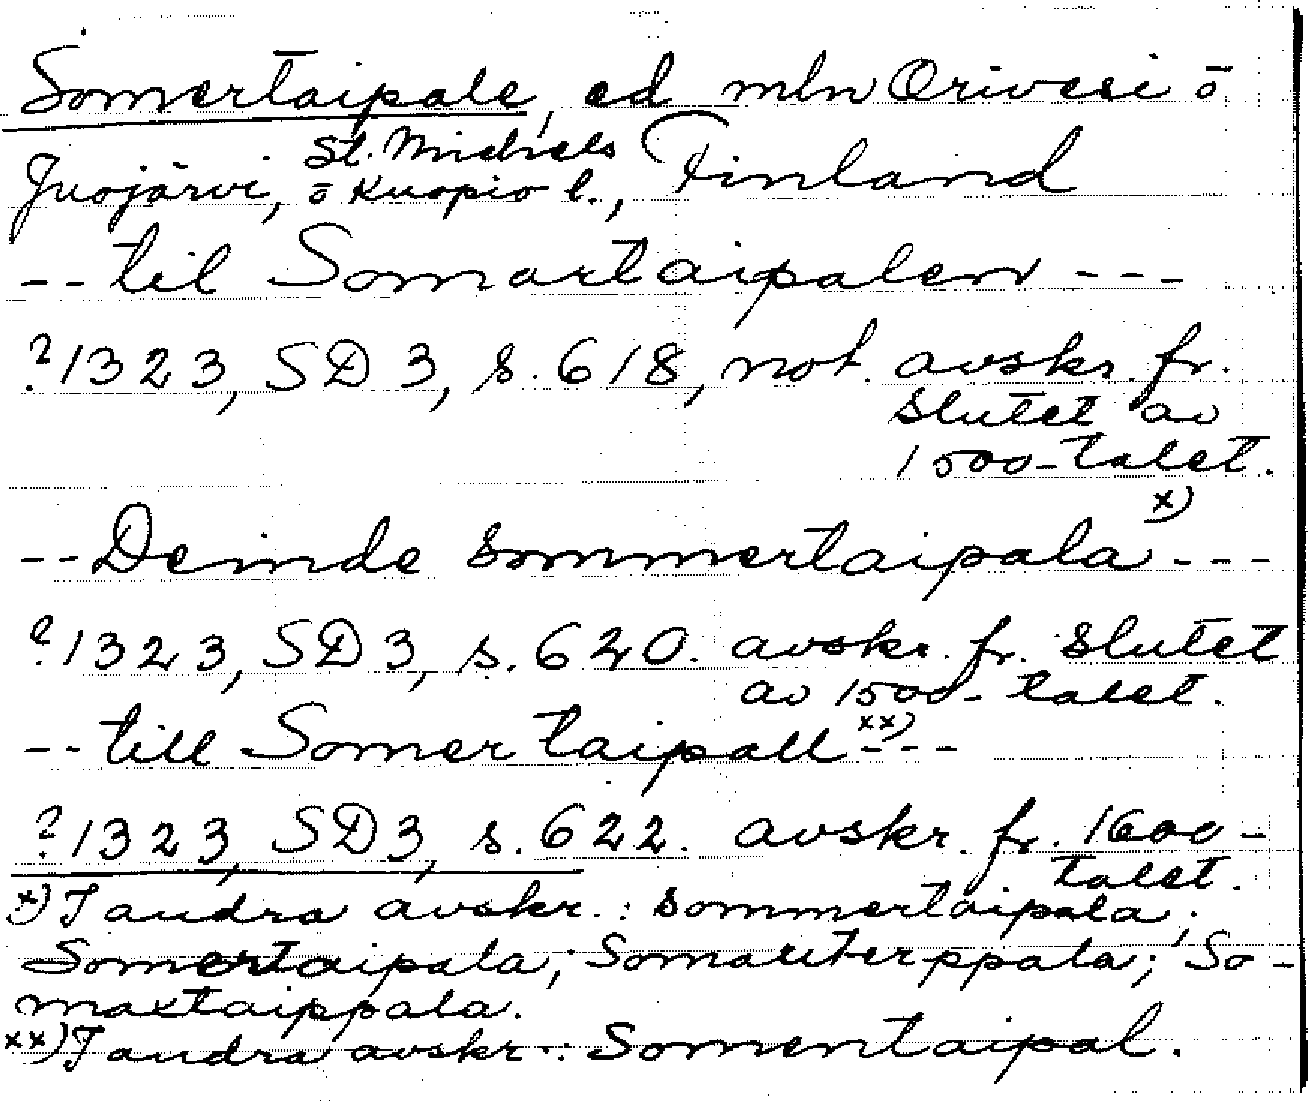 Somertaipale, ed mln Orivesi o
Juojärvi, St. Michels o Kuopio l., Finland
-- till Somartaipalen ---
?1323, SD 3, s. 618, not. avskr. fr.
slutet av
1500-talet.
-- Deinde sommertaipala x) ---
?1323, SD 3, s. 620. avskr. fr. slutet
av 1500-talet.
-- till Somer taipall xx) ---
?1323, SD 3, s. 622. avskr. fr. 1600-
talet.
x) I andra avskr.: sommertaipala;
Somertaipala; Somariterppala; So-
maxtaippala.
xx) I andra avskr.: Somentaipal.